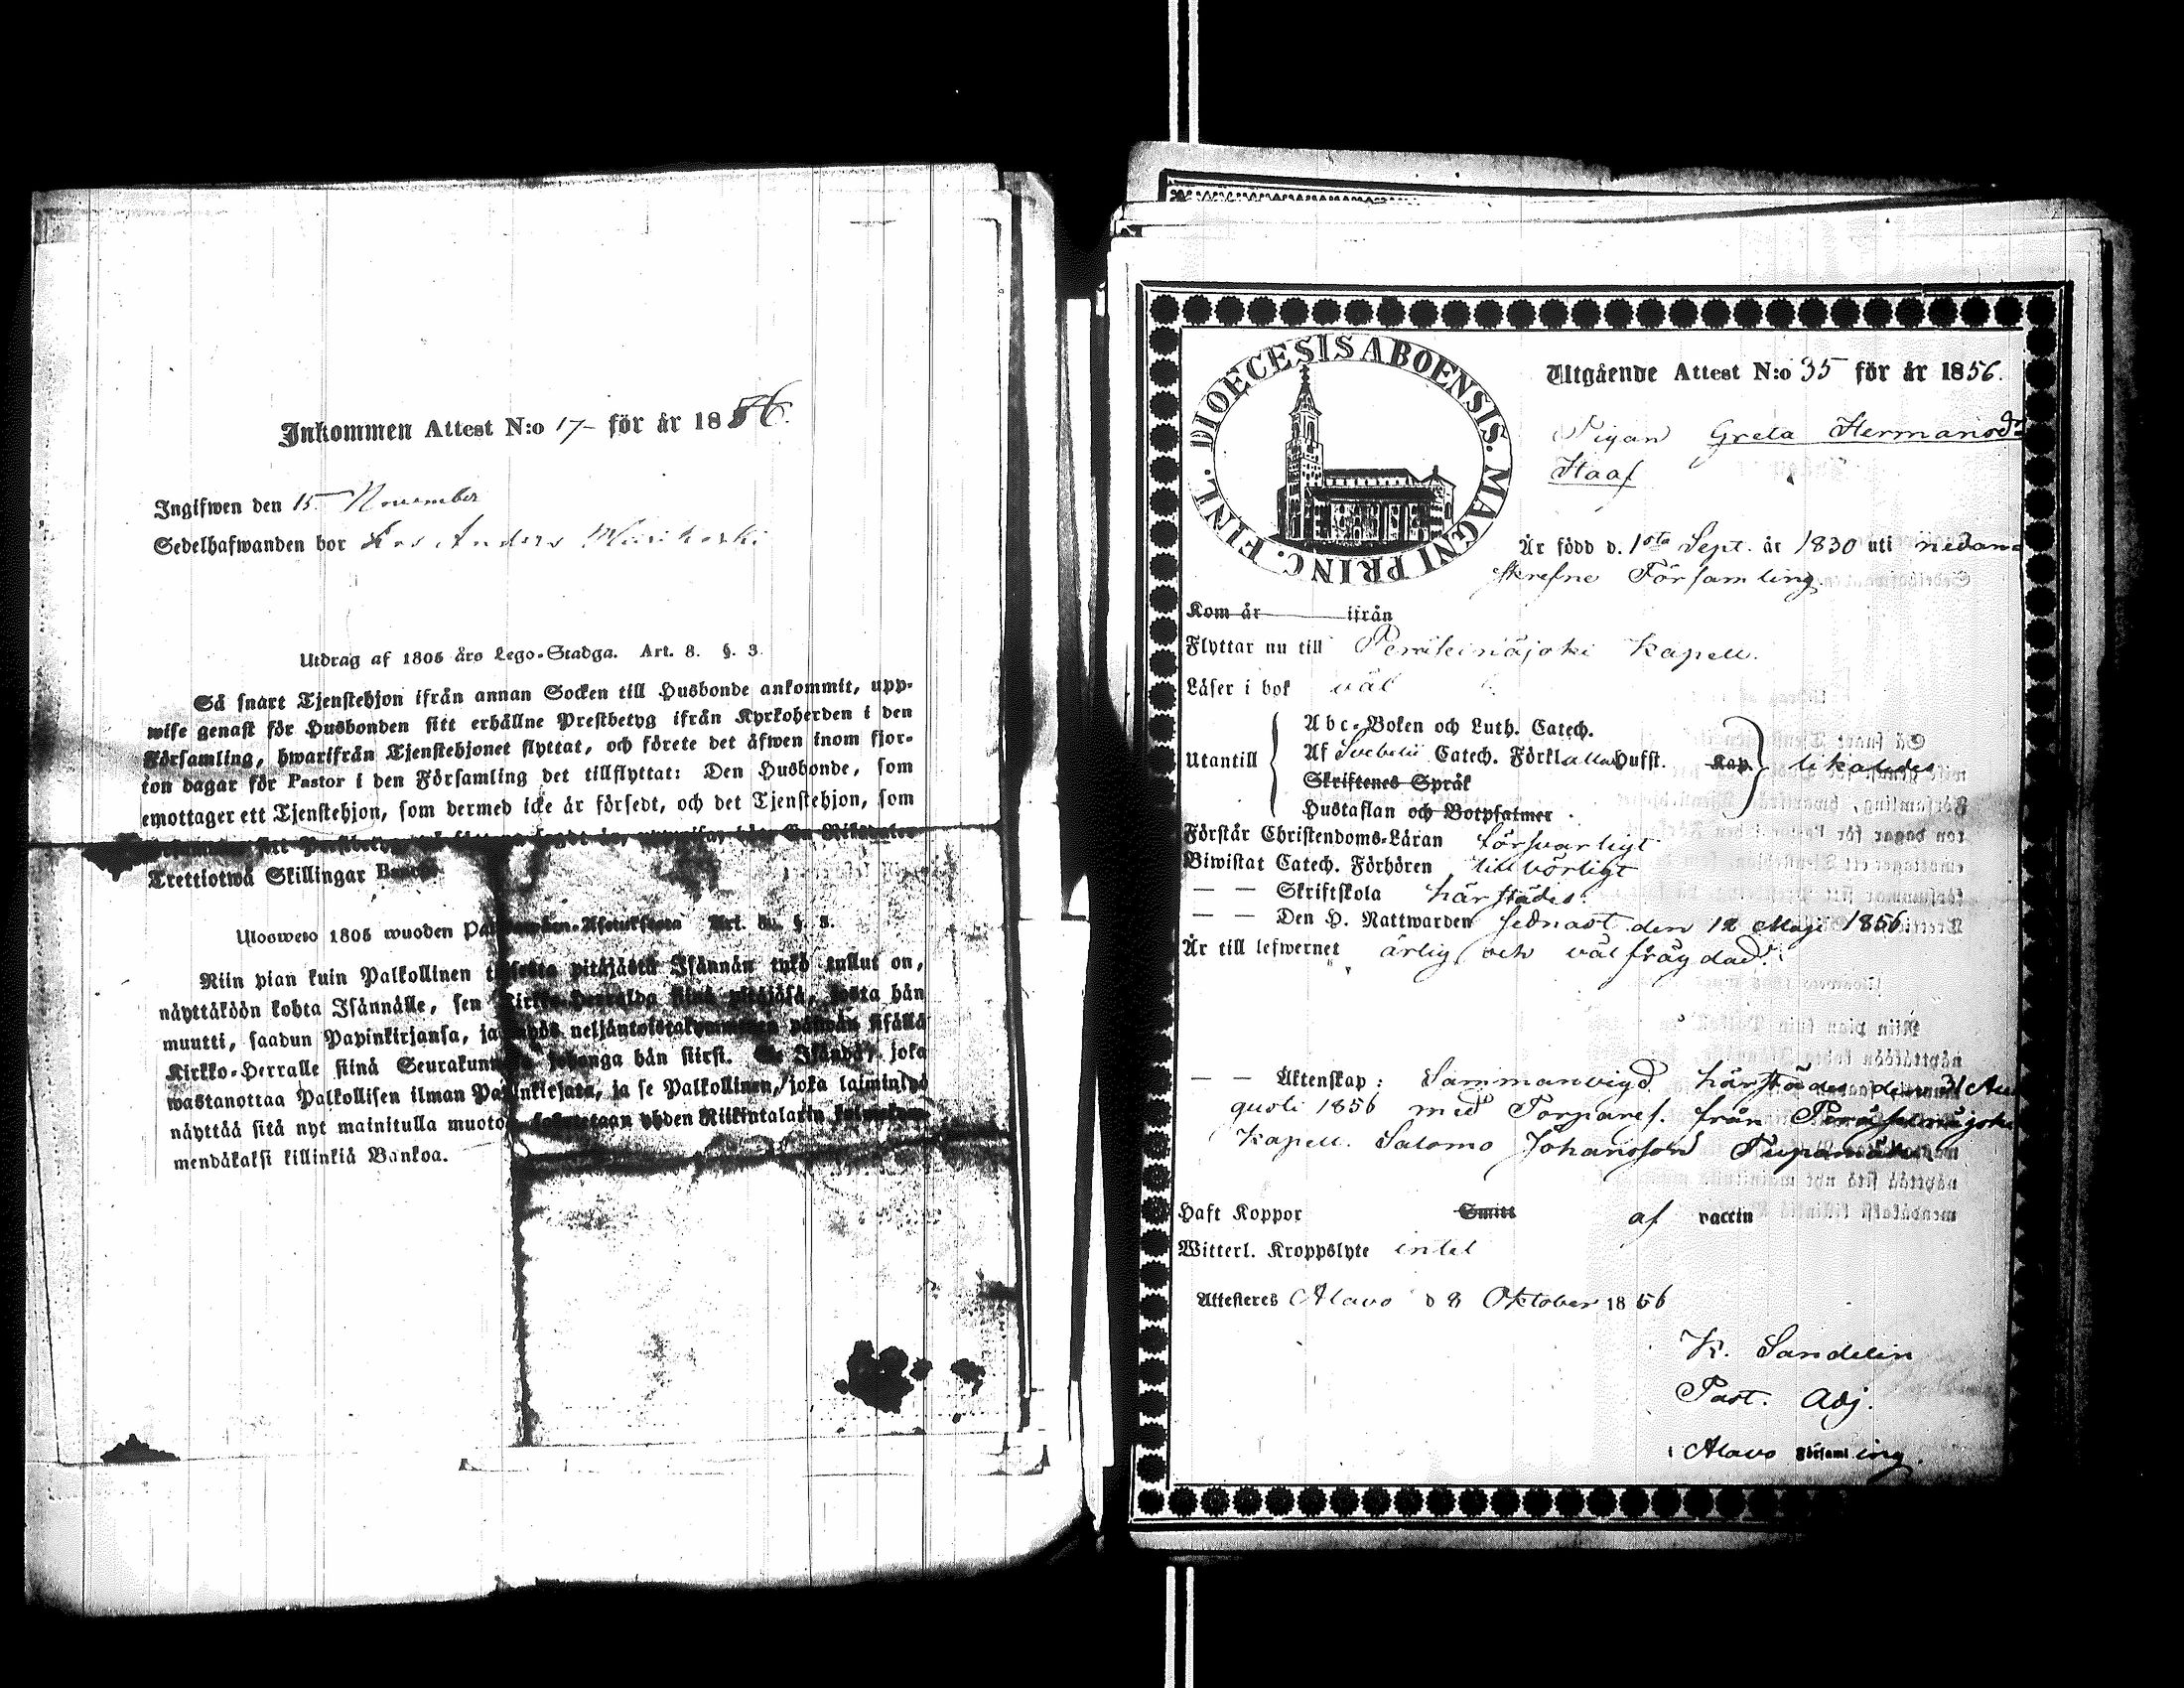 Inkommen Attest N:o 17 för år 1856.
Ingifwen den 15 November
Sedelhafwanden bor hos Anders
Utdrag af 1805 års Lego-Stadga. Art. 8. §. 3.
Så snart Tjenstehjon ifrån annan Socken till Husbonde ankommit, upp-
wise genast för Husbonden sitt erhållne Prestbetyg ifrån Kyrkoherden i den
Församling, hwarifrån Tjenstehjonet flyttat, och förete det äfwen inom fjor-
ton dagar för Pastor i den Församling det tillflyttat: Den Husbonde, som
emottager ett Tjenstehjon, som dermed icke är försedt, och det Tjenstehjon, som
Trettiotwå Skillingar Banco.
Ulosweto 1805 wuoden Art. 8. §. 3.
Niin pian kuin Palkollinen toisesta pitäjästä Isännän tykö tullut on,
näyttäköön kohta Isännälle, sen Kirkko-Herralda siinä pitäjäsä, josta hän
muutti, saadun Papinkirjansa, ja myös neljäntoistakymmenen päiwän sisällä
Kirkko-Herralle siinä Seurakunnasa, johonga hän siirsi. Se Isändä, joka
wastanottaa Palkollisen ilman Papinkirjata, ja se Palkollinen, joka laiminlyö
näyttää sitä nyt mainitulla muotoa, sakoitetaan yhden Riikintalarin
mendäkaksi killinkiä Bankoa.
DIOECESIS ABOENSIS. MAGNI PRINC. FINL.
Utgående Attest N:o 35 för år 1856.
Pigan Greta Hermansdr
Staaf
Är född d. 1sta Sept. år 1830 uti nedan-
skrefne Församling.
Kom år ifrån
Flyttar nu till Peräseinäjoki Kapell.
Läser i bok väl
Utantill
Abc-Boken och Luth. Catech.
Af Svebelii Catech. Förkl alla Hufst. Kap.
Skriftenes Språk
Hustaflan och Botpsalmer.
likaledes
Förstår Christendoms-Läran försvarligt
Biwistat Catech. Förhören tillbörligt
— — Skriftskola härstädes.
— — Den H. Nattwarden sednast den 12 Maji 1856.
Är till lefwernet ärlig och välfrägdad.
— — Äktenskap: Sammanvigd härstädes den 31 Au-
gusti 1856 med Torpares. från Peräseinäjoki
Kapell. Salomo Johansson
Haft Koppor Smitt af vaccin
Witterl. Kroppslyte intet
Attesteres Alavo d 8 Oktober 1856
K. Sandelin
Past. Adj.
i Alavo Församling.